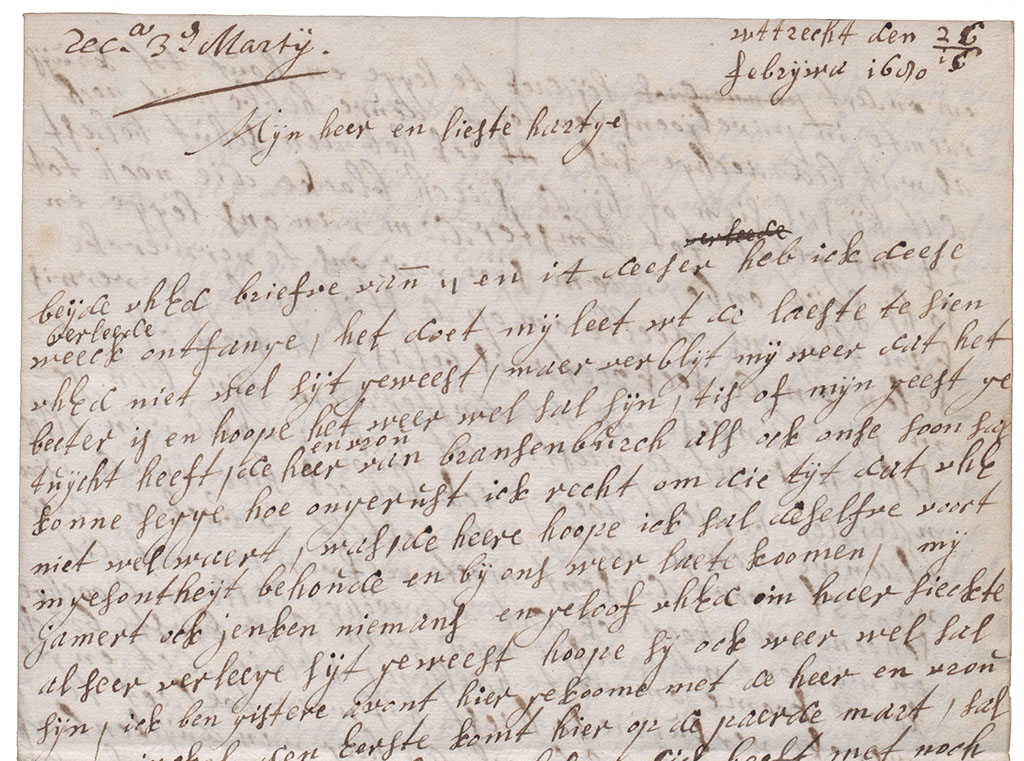 Rec.a 3d Martij.
wttrecht den 26/16
febrywa 1680
Mijn heer en lieste hartye
verleede
beijde vhEd briefve vann 11 en it deeser heb ick deese
verleede
weeck ontfange, het doet mij leet wt de laeste te sien
vhEd niet wel sijt geweest, maer verblijt mij weer dat het
beeter is en hoope het weer wel sal sijn, tis of mijn geest ge
en vrou
tuijcht heeft, de heer van bransenburch als ock onse soon sal
konne segge hoe ongerust ick recht om die tijt dat vhE
niet wel waert, was, de heere hoope ick sal deselfve voort
in gesontheijt behoude en bij ons weer laete koomen, mij
jamert ock jenken niemans en geloof vhEd om haer sieckte
al seer verleege sijt geweest hoope sij ock weer wel sal
sijn, ick ben gistere avont hier gekoome met de heer en vrou
den Eerste komt hier op de paerde mart, sal
heeft met noch